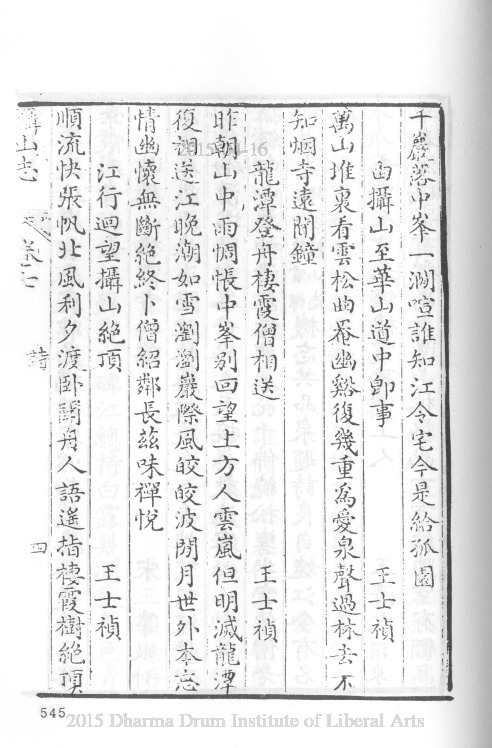 千巖落中峯一澗喧誰知江令宅今是給孤園
由攝山至華山道中卽事 王士禎
萬山堆裏看雲松曲菴幽谿復幾重為愛泉聲過林去不
知烟寺遠聞鐘
龍潭登舟棲霞僧相送 王士禎
昨朝山中雨惆悵中峯別回望上方人雲嵐但明滅龍潭
復相送江晚潮如雪瀏瀏巖際風皎皎波閒月世外本忘
情幽懷無斷絶終卜僧紹鄰長茲味禪悅
江行迴望攝山絶頂 王士禎
順流快張帆北風利夕渡卧聞舟人語遙指棲霞樹絶頂
攝山志 卷七 詩 四
545
2015 Dharma Drum Institute of Liberal Arts